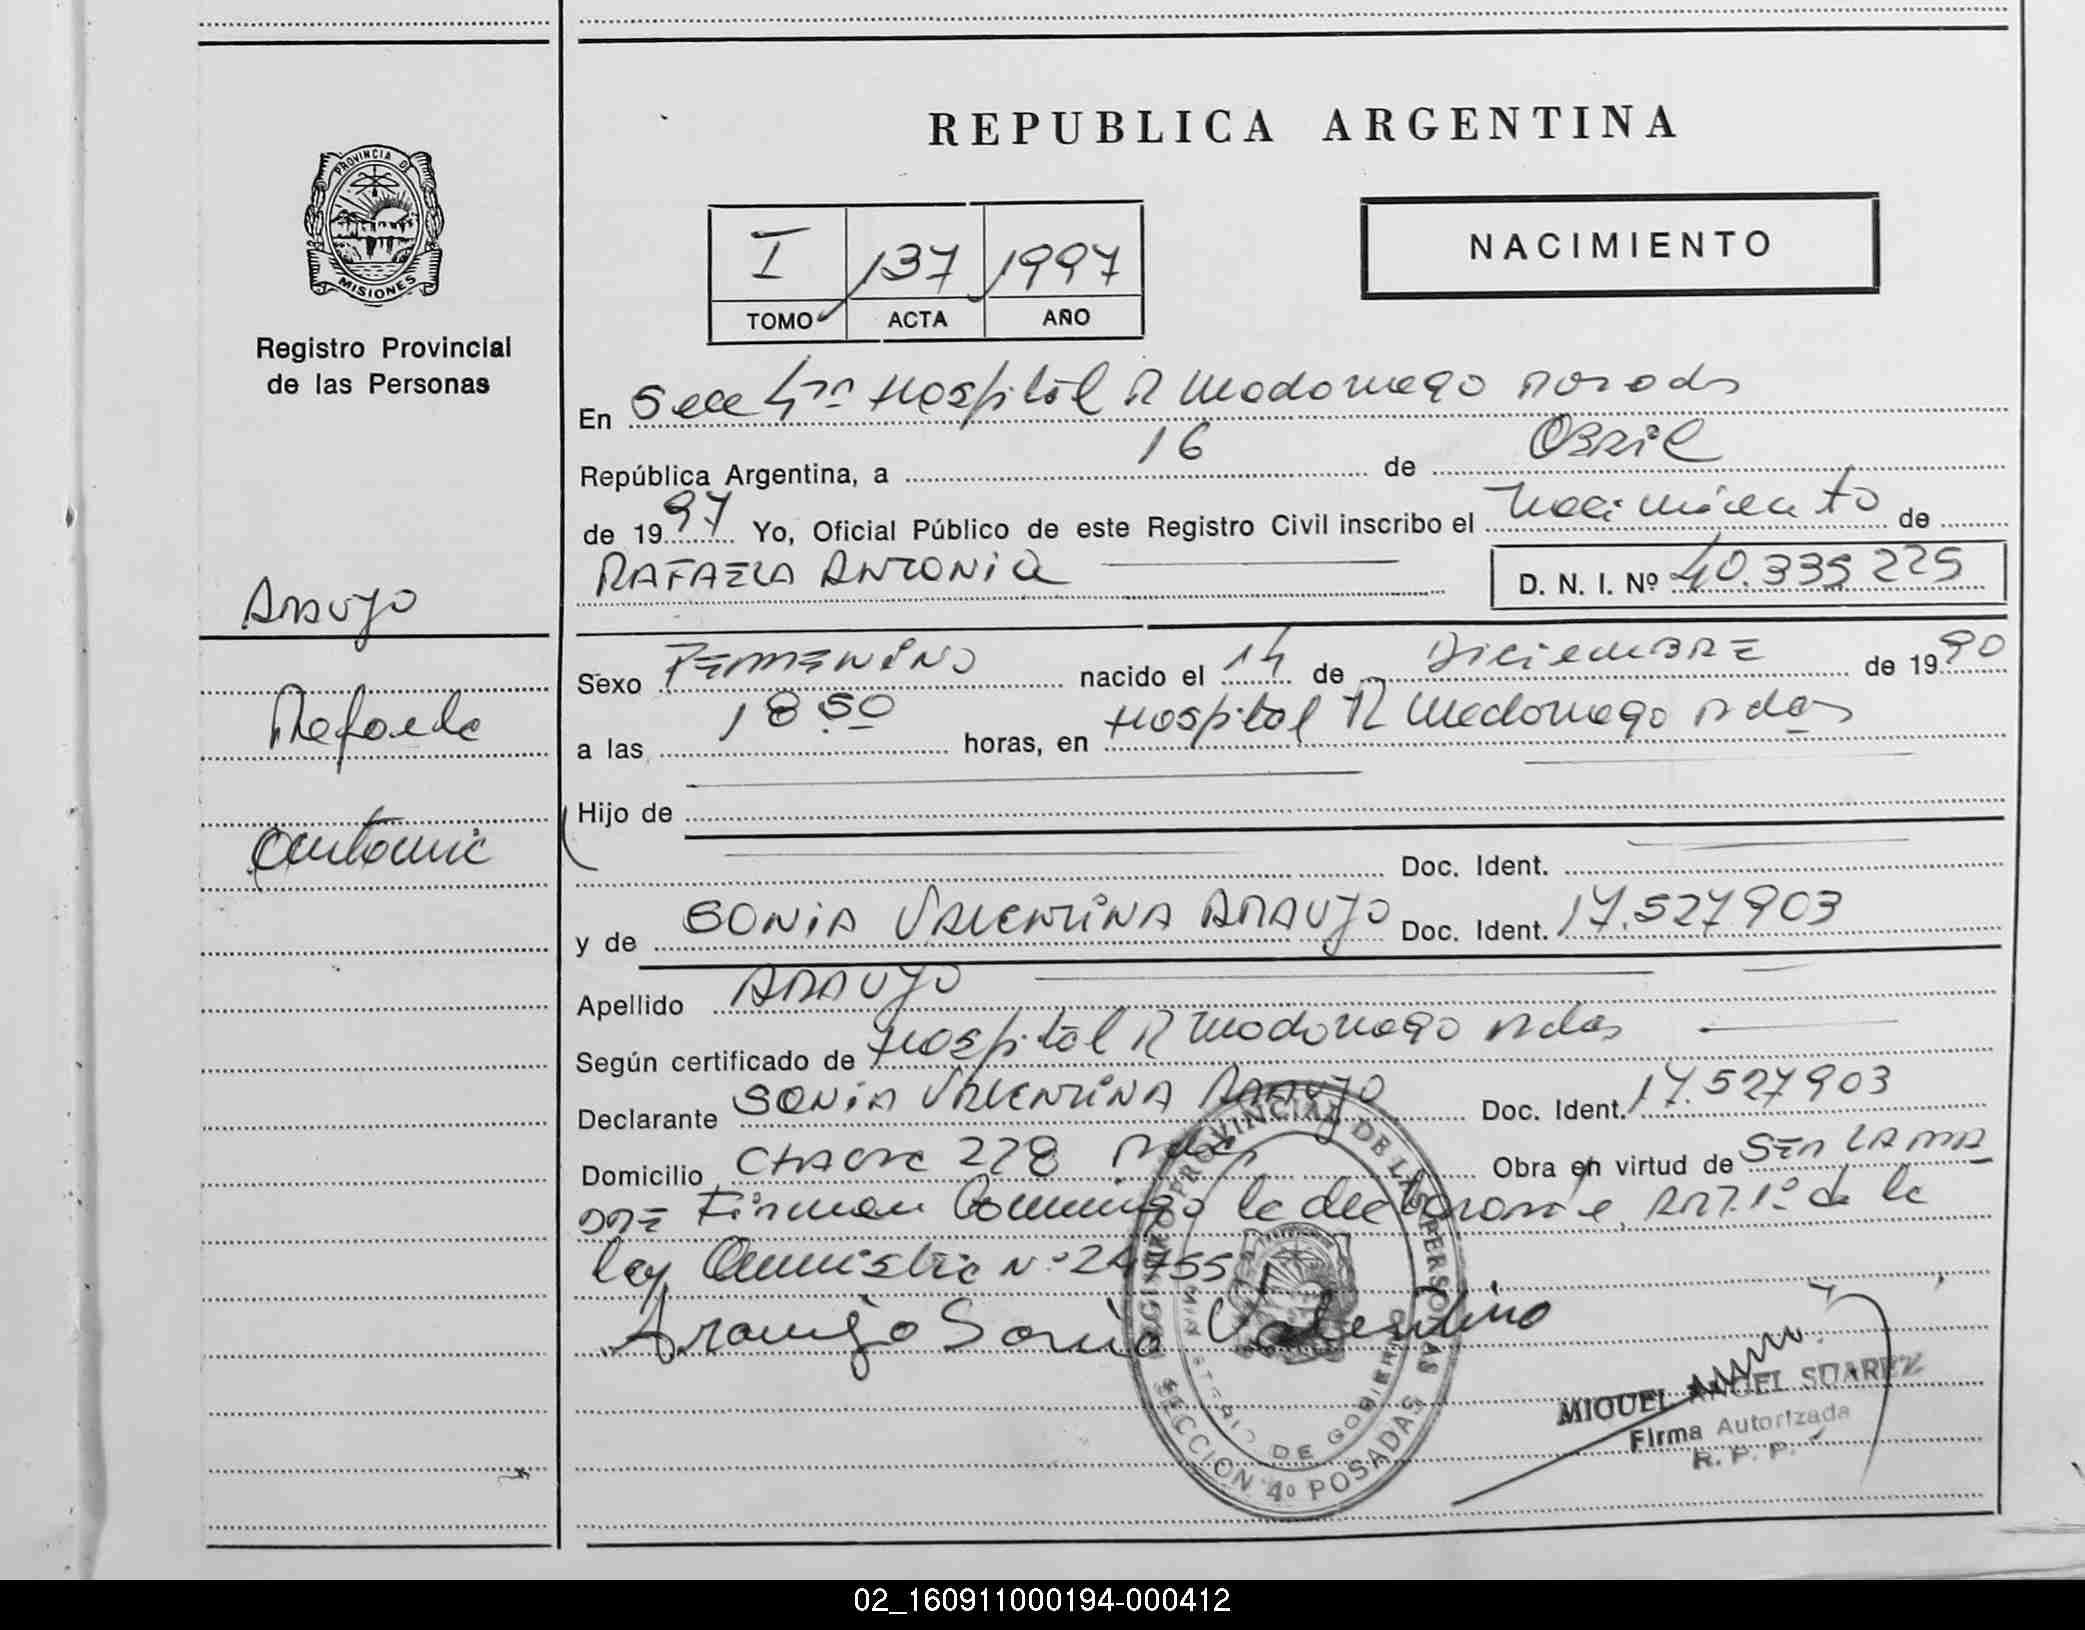 REPUBLICA ARGENTINA
PROVINCIA DE
MISIONES
Registro Provincial
de las Personas
I 137 1997
TOMO ACTA AÑO
NACIMIENTO
En Secc 4ta Hospital R Madariaga Posadas
República Argentina, a 16 de Abril
de 1997 Yo, Oficial Público de este Registro Civil inscribo el Nacimiento de
RAFAELA ANTONIA D. N. I. Nº 40.335 225
Araujo
Rafaela
Antonia
Sexo Femenino nacido el 14 de Diciembre de 1990
a las 18.50 horas, en Hospital R Madariaga Pdas
Hijo de
Doc. Ident.
y de SONIA VALENTINA ARAUJO Doc. Ident. 17.527903
Apellido ARAUJO
Según certificado de Hospital R Madariaga Pdas
Declarante SONIA VALENTINA ARAUJO Doc. Ident. 17.527903
Domicilio CHACRA 228 Pdas Obra en virtud de SER LA MA
DRE Firman Conmigo la declarante, ART. 1º de la
ley Amnistia Nº 24755
Araujo Sonia Valentina
REGISTRO PROVINCIAL DE LAS PERSONAS
MINISTERIO DE GOBIERNO
SECCION 4º POSADAS
MIGUEL ANGEL SUAREZ
Firma Autorizada
R. P. P.
02_160911000194-000412